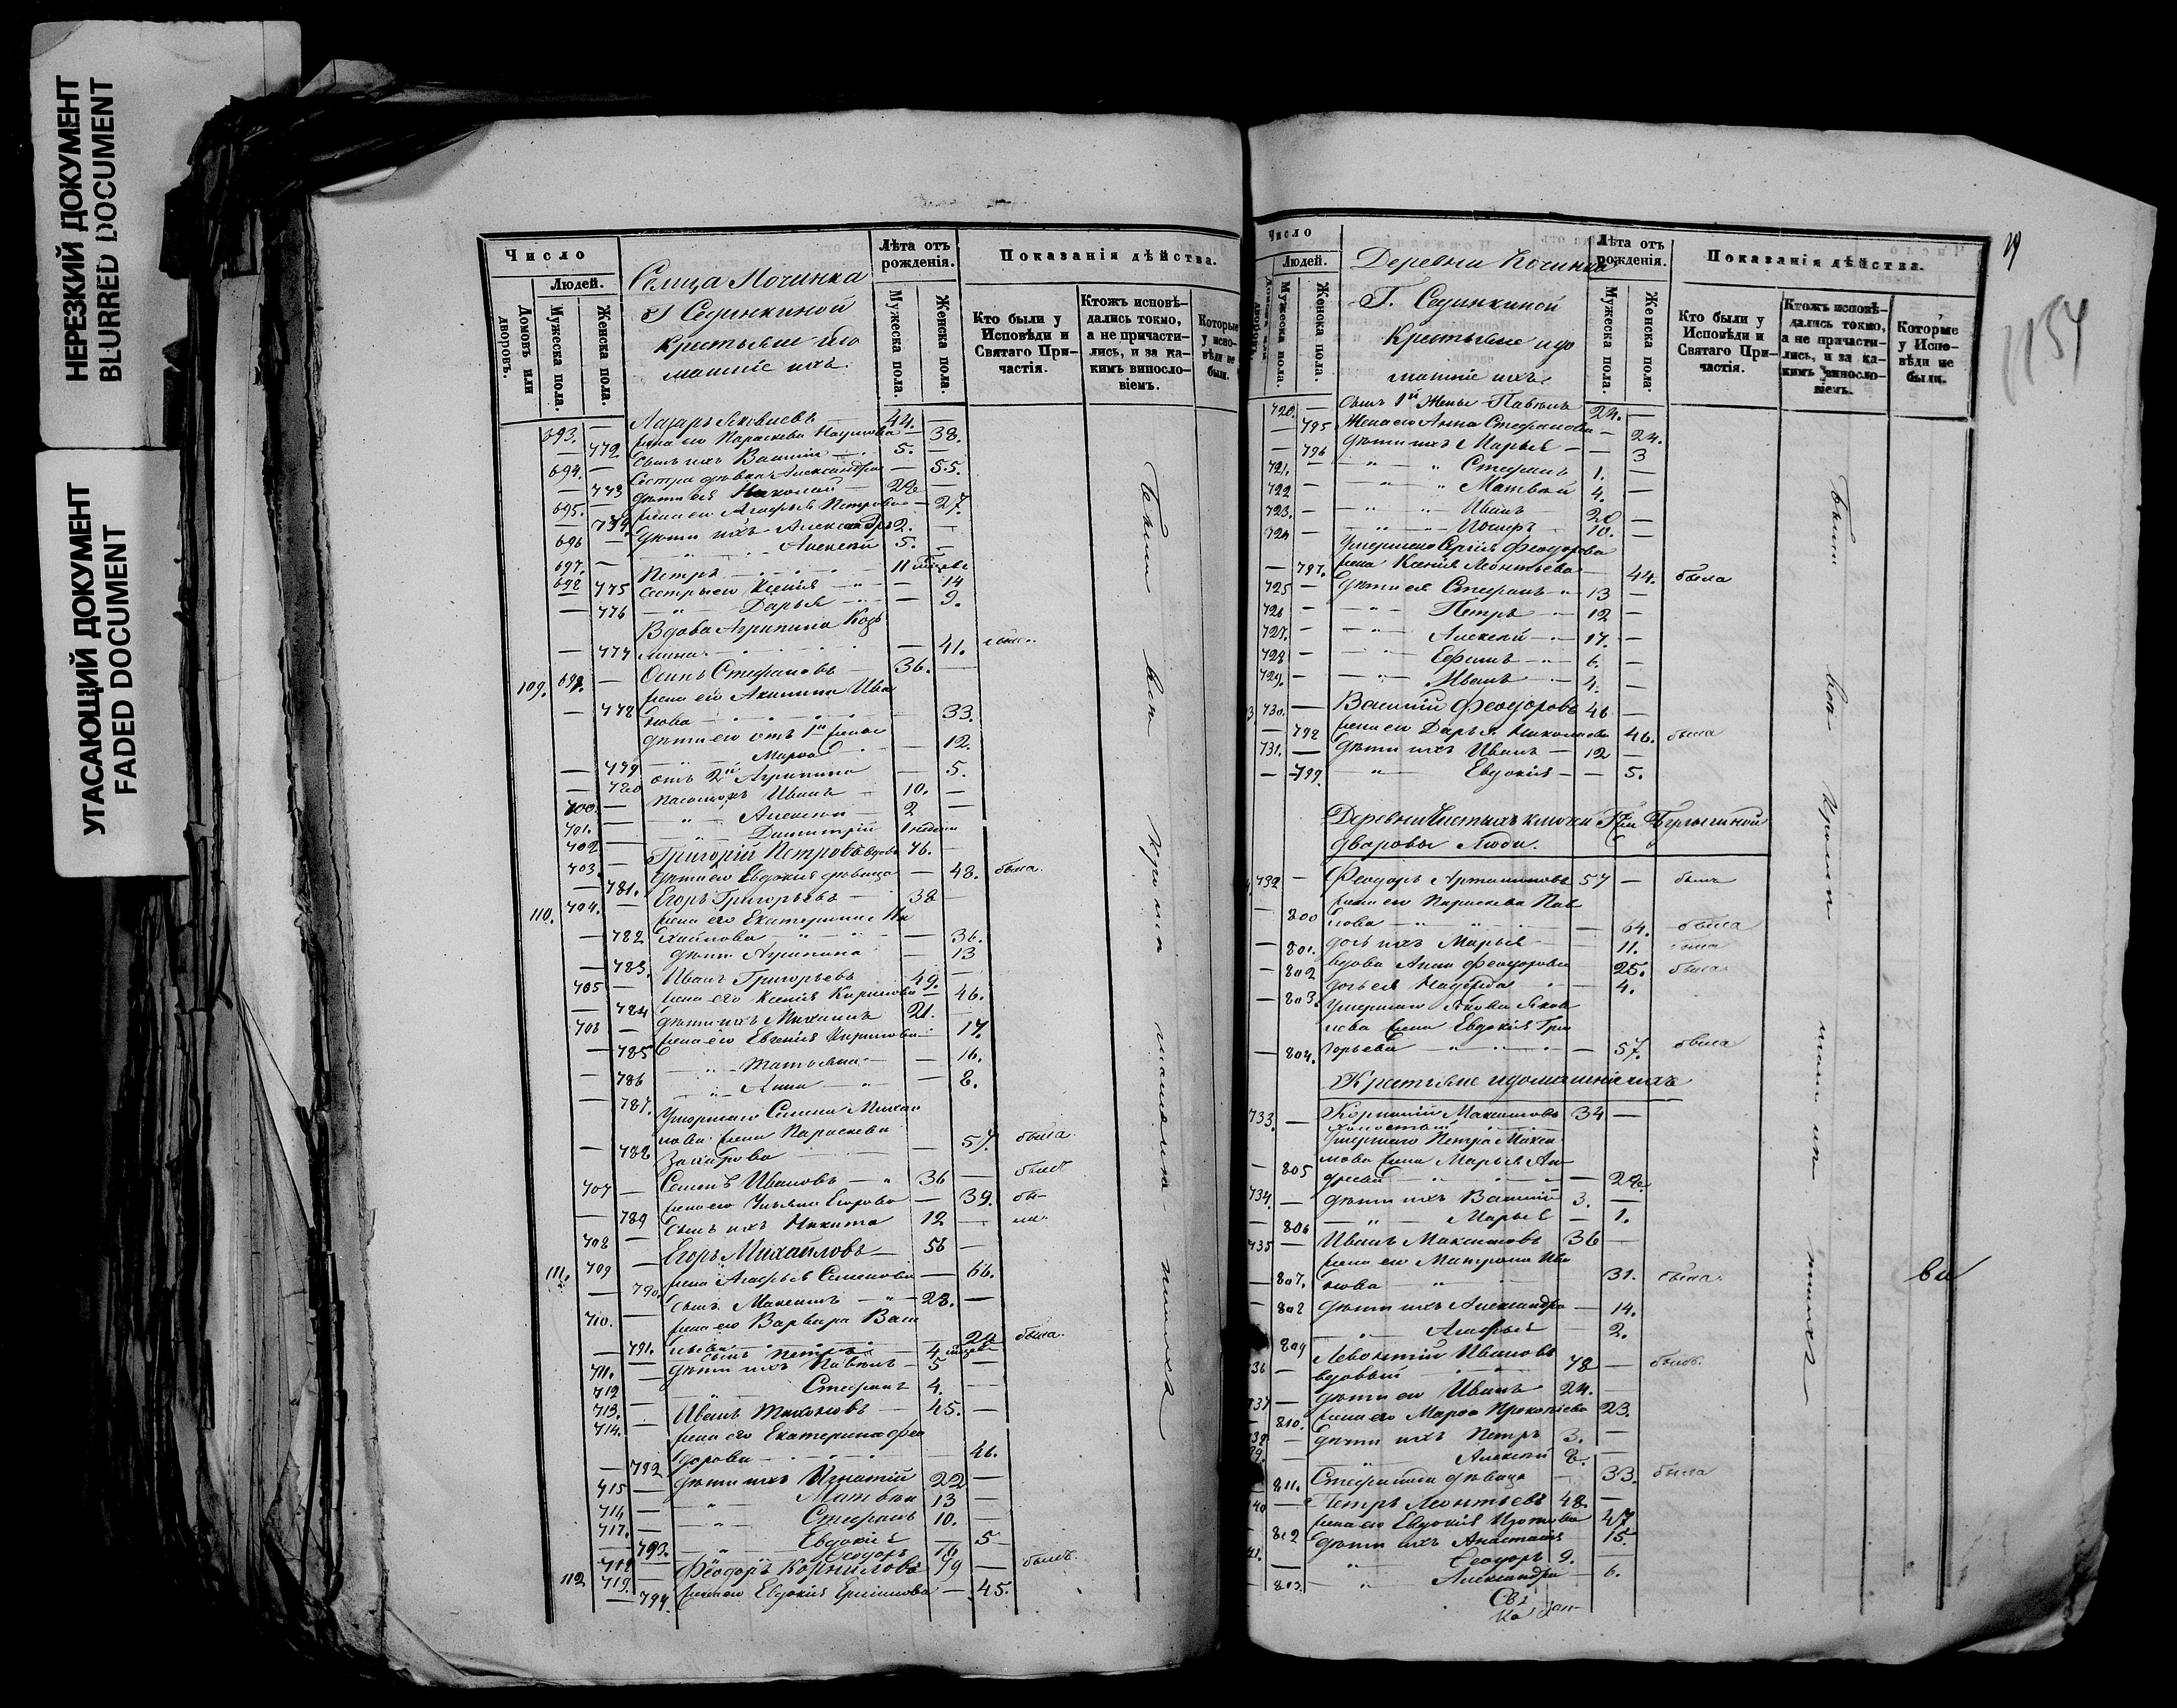 НЕРЕЗКИЙ ДОКУМЕНТ
BLURRED DOCUMENT
УГАСАЮЩИЙ ДОКУМЕНТ
FADED DOCUMENT
Число
Людей.
Домовъ или дворовъ.
Мужеска пола.
Женска пола.
Починка
Г Сединкиной
Крестьяне
ихъ.
Лѣта отъ рожденія.
Мужеска пола.
Женска пола.
Показанія дѣйства.
Кто были у Исповѣди и Святаго Причастія.
Ктожъ исповѣдались токмо, а не причастились, и за какимъ винословіемъ.
Которые у исповѣди не были.
693. — Лазарь Яковлевъ 44. —
— 772 жена его Параскева — 38.
694. — Сынъ ихъ Василій 5. —
— 773 Сестра дѣвка Александра — 55.
695. — дѣти ея Николай 28 —
— 774 жена его Агафья Петрова — 27.
696 — дѣти ихъ Александръ 2. —
697. — Алексѣй 5. —
698 — Петръ 11
— 775 сестры его Ксенія — 14
— 776 Дарья — 9.
Вдова Агрипина Козь
— 777 мина — 41. была
109. 699. — Осипъ Стефановъ 36. —
жена его Акилина Ива
— 778 нова — 33.
дѣти его отъ 1й жены
— 779 Марѳа — 12.
— 780 отъ 2й Агрипина — 5.
700. — Иванъ 10. —
701. — Алексѣй 2 —
702 — Димитрій 1 недели
703. — Григорій Петровъ вдовъ 76. —
— 781. дѣти его Евдокія дѣвица — 48. была.
110. 704. — Егоръ Григорьевъ 38 —
жена его Екатерина Ми
— 782 хайлова — 36.
— 783. дѣти Агрипина — 13
705 — Иванъ Григорьевъ 49. —
— 784 жена его Ксенія Кирилова — 46.
706 — дѣти ихъ Михаилъ 21. —
— 785 жена его Евгенія Кирилова — 17.
— 786 Татьяна — 16.
— 787. Анна — 8.
Умершаго Семена Михаи
лова жена Параскева
— 788 Захарова — 57. была.
707 — Семенъ Ивановъ 36 — былъ
— 789 жена его Ульяна Егорова — 39. бы-
708 — Сынъ ихъ Никита 12 — ли.
111. 709 — Егоръ Михайловъ 56 —
— 790. жена Агафья Семенова — 66.
710. — Сынъ Максимъ 28. —
жена его Варвара Васи
— 791. льева — 28 была.
711. — сынъ Петръ 4
712 — дѣти ихъ Павелъ 5 —
713. — Стефанъ 4. —
714. — Иванъ Тихоновъ 45. —
жена его Екатерина Фео
— 792 дорова — 46.
715 — дѣти ихъ Игнатій 22 —
716 — Матвѣй 13 —
717. — Стефанъ 10. —
— 793. Евдокія — 5
718 — Ѳеодоръ 16
112 719. — Ѳеодоръ Корниловъ 79 — былъ.
— 794. жена его Евдокія — 45.
19
1154
Число
Людей.
Мужеска пола.
Женска пола.
Деревни Починка
Г. Сединкиной
Крестьяне и до
машніе ихъ.
Лѣта отъ рожденія.
Мужеска пола.
Женска пола.
Показанія дѣйства.
Кто были у Исповѣди и Святаго Причастія.
Ктожъ исповѣдались токмо, а не причастились, и за какимъ винословіемъ.
Которые у Исповѣди не были.
720. — Сынъ 1й Жены Павелъ 24. —
— 795 Жена его Анна Стефанова — 24.
— 796 дѣти ихъ Марья — 3
721. — Стефанъ 1. —
722 — Матвѣй 4. —
723. — Иванъ 20 —
724 — Іосифъ 10. —
Умершаго Сергія Феодорова
— 797. жена Ксенія Леонтьева — 44. была
725 — дѣти ея Стефанъ 13 —
726 — Петръ 12 —
727. — Алексѣй 17. —
728 — Ефимъ 6. —
729. — Иванъ 4. —
3 730. — Василій Феодоровъ 46 —
— 798 жена его Дарья Николаева 46. была
731. — дѣти ихъ Иванъ 12 —
— 799. Евдокія — 5.
Деревни Чистыхъ ключи Гжи Булыгиной
дворовые люди.
732 — Феодоръ Артамоновъ 57 — былъ
жена его Параскева Пав
— 800 лова — 64. была
— 801. дочь ихъ Марья — 11. была
— 802 вдова Анна Феодорова — 25. была.
— 803. дочь ея Надежда — 4.
Умершаго Якова Яков
лева жена Евдокія Гри
— 804. горьева — 57. была
Крестьяне и домашніе ихъ
733. — Корнилій Максимовъ 34 —
холостой
Умершаго Петра Макси
мова жена Марья Ан
— 805 дреева — 28.
734. — дѣти ихъ Василій 3. —
— 806 Марья — 1.
735 — Иванъ Максимовъ 36 —
жена его Матрона Ива
— 807. нова 31. была.
— 808 дѣти ихъ Александра — 14.
809 Агафья 2.
736 — Левонтій Ивановъ
вдовый 78 — былъ.
737 — дѣти его Иванъ 24. —
— 810. жена его Марѳа Прокопіева 23.
738 — дѣти ихъ Петръ 3. —
Алексѣй 8.
811. Стефанида дѣвица — 33. была
— Петръ Леонтьевъ 48. —
812 жена его Евдокія 47
дѣти ихъ Анастасія 15.
Ѳеодоръ 9. —
813. Александра — 6.